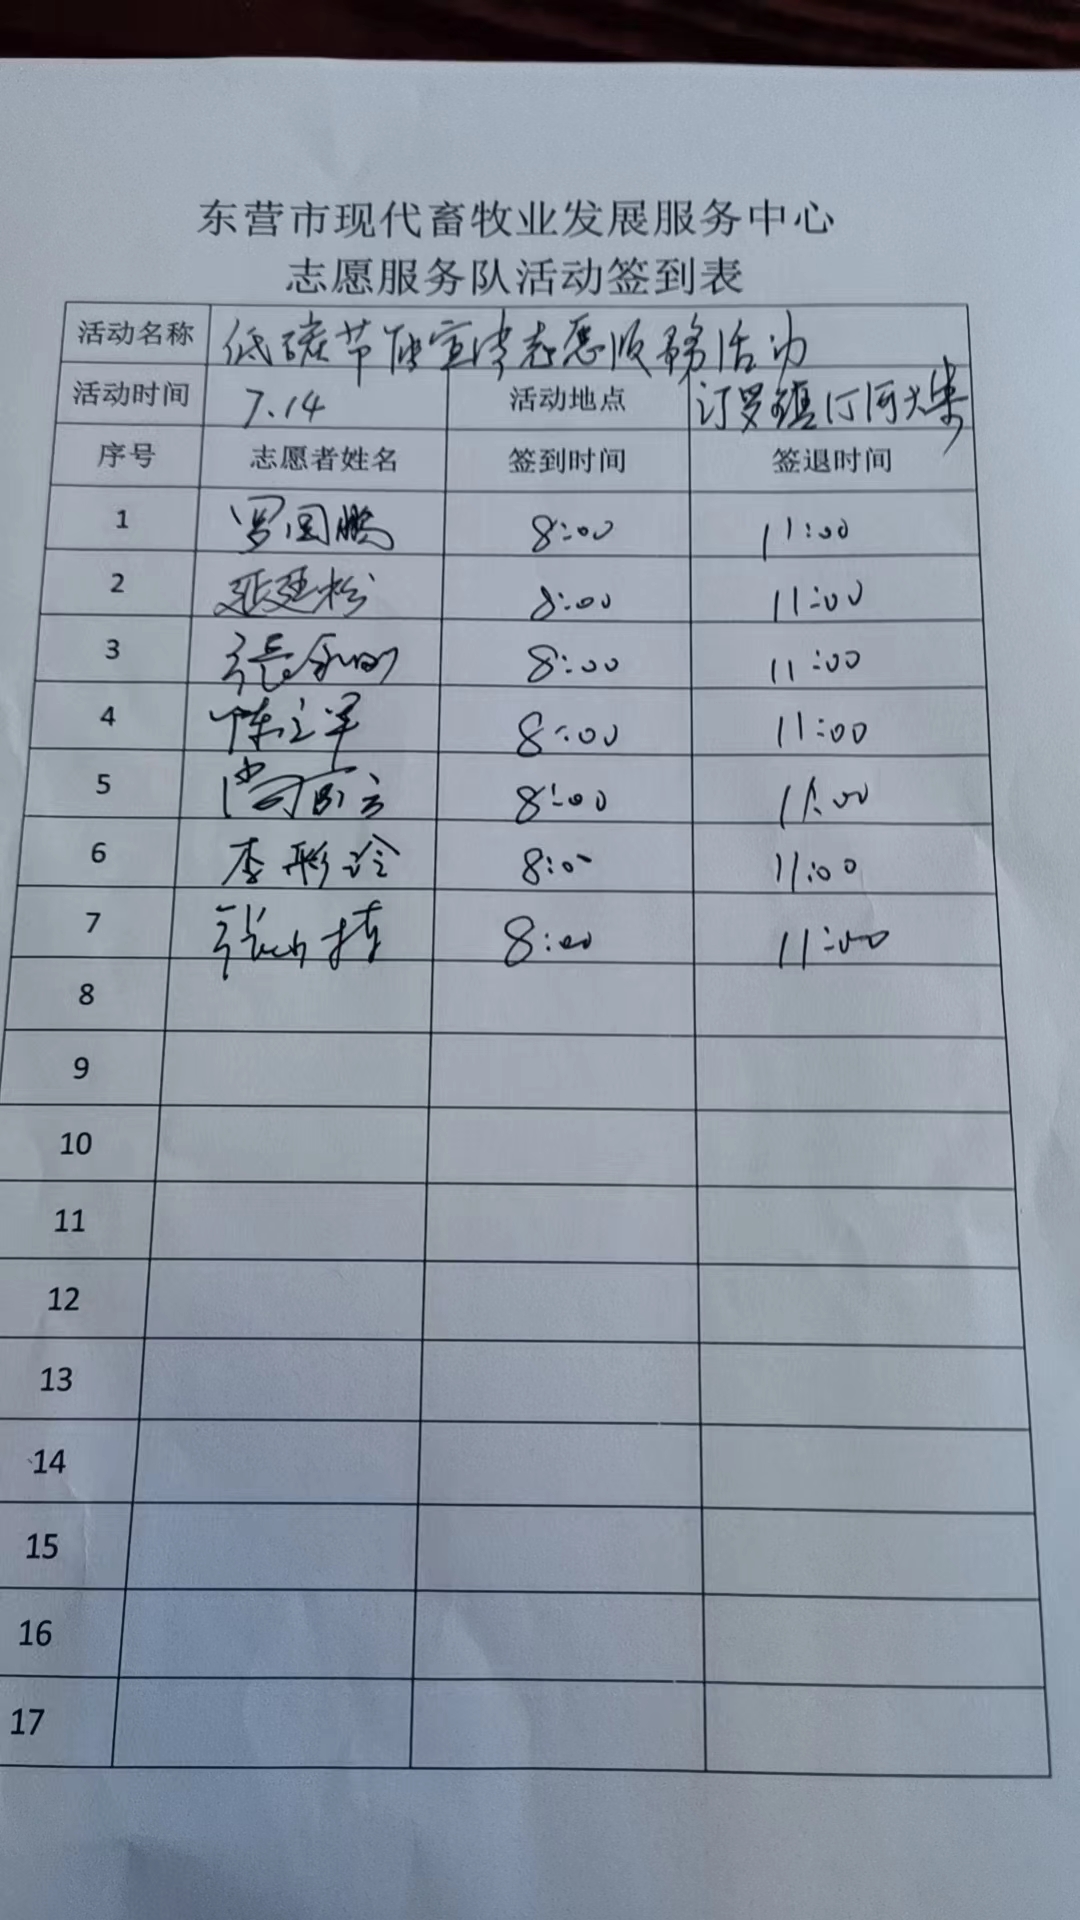 东营市现代畜牧业发展服务中心
志愿服务队活动签到表
活动名称 低碳节能宣传志愿服务活动
活动时间 7.14 活动地点 汀罗镇汀河
序号 志愿者姓名 签到时间 签退时间
1 罗国鹏 8:00 11:00
2 8:00 11:00
3 張 8:00 11:00
4 陈立军 8:00 11:00
5 尚 8:00 11:00
6 李彤玲 8:00 11:00
7 张 8:00 11:00
8
9
10
11
12
13
14
15
16
17